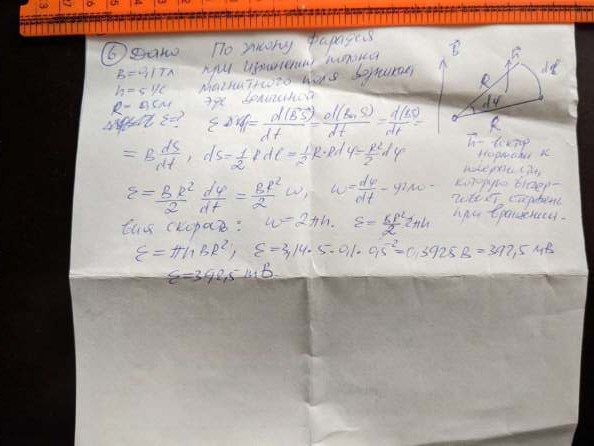 6 Дано По закону Фарадея
B=0,1Тл при изменении потока
n=5 1/с магнитного поля возникает
R=0,5м ЭДС величиной
ε-? ε = d(BS)/dt = d(BnS)/dt = d(BS)/dt =
= B dS/dt, dS=1/2 R dl=1/2 R·R dφ=R²/2 dφ
ε=BR²/2 dφ/dt=BR²/2 ω, ω=dφ/dt - угло-
вая скорость: ω=2πn. ε=BR²/2 2πn
ε=πnBR², ε=3,14·5·0,1·0,5²=0,3925В=392,5мВ
ε=392,5мВ.
B n dl
R dφ
R
n - вектор
нормали к
поверхности,
которую
стержень
при вращении.